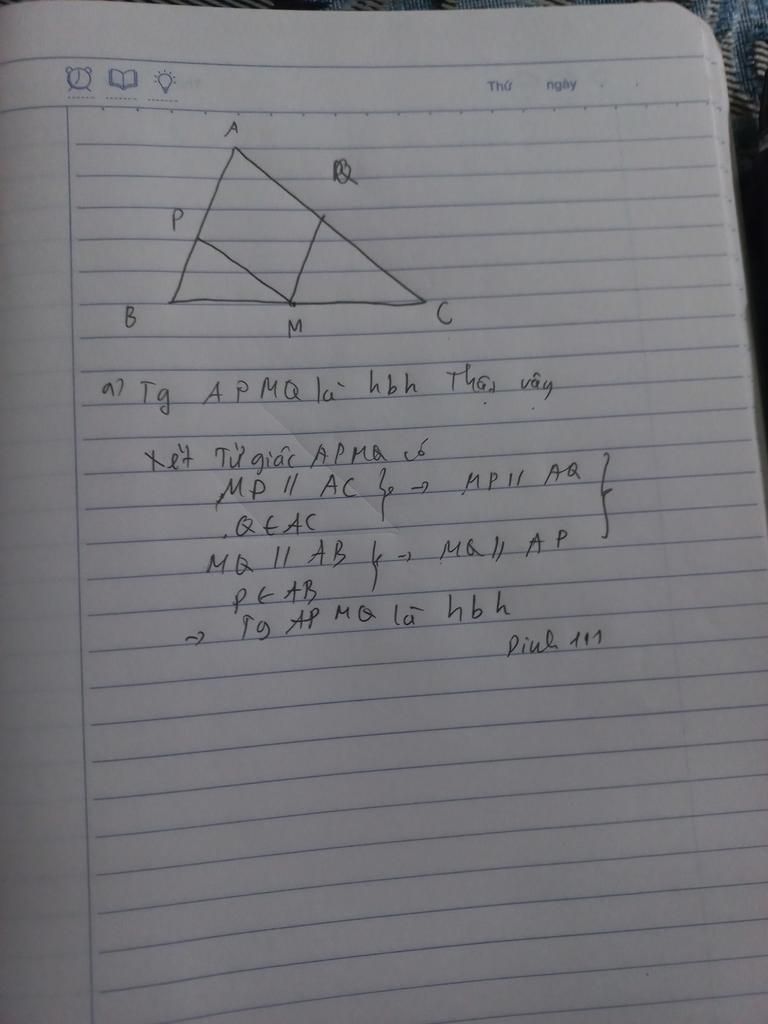 Thứ ngày
A
Q
P
B
M
C
a) Tg APMQ là hbh Thật vậy
Xét Tứ giác APMQ có
MP // AC } → MP // AQ }
Q ∈ AC
MQ // AB } → MQ // AP
P ∈ AB
→ Tg APMQ là hbh